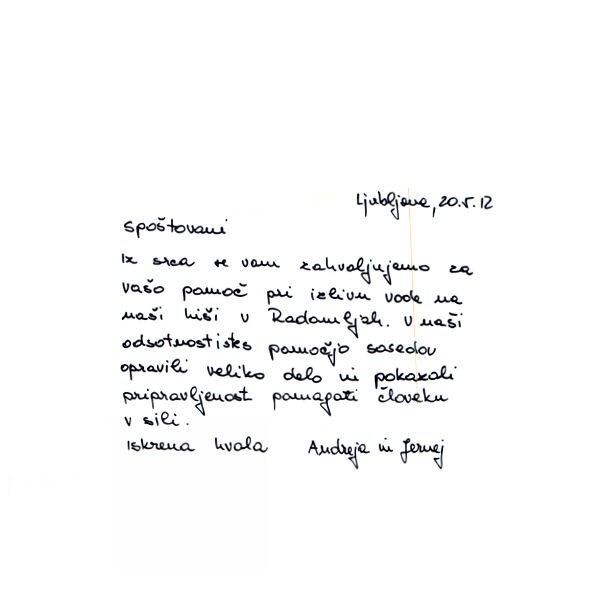 Ljubljana, 20.5.12
spoštovani
Iz srca se vam zahvaljujemo za
vašo pomoč pri izlivu vode na
naši hiši v Radomljah. V naši
odsotnosti ste s pomočjo sosedov
opravili veliko delo in pokazali
pripravljenost pomagati človeku
v sili.
Iskrena hvala Andreja in Jernej